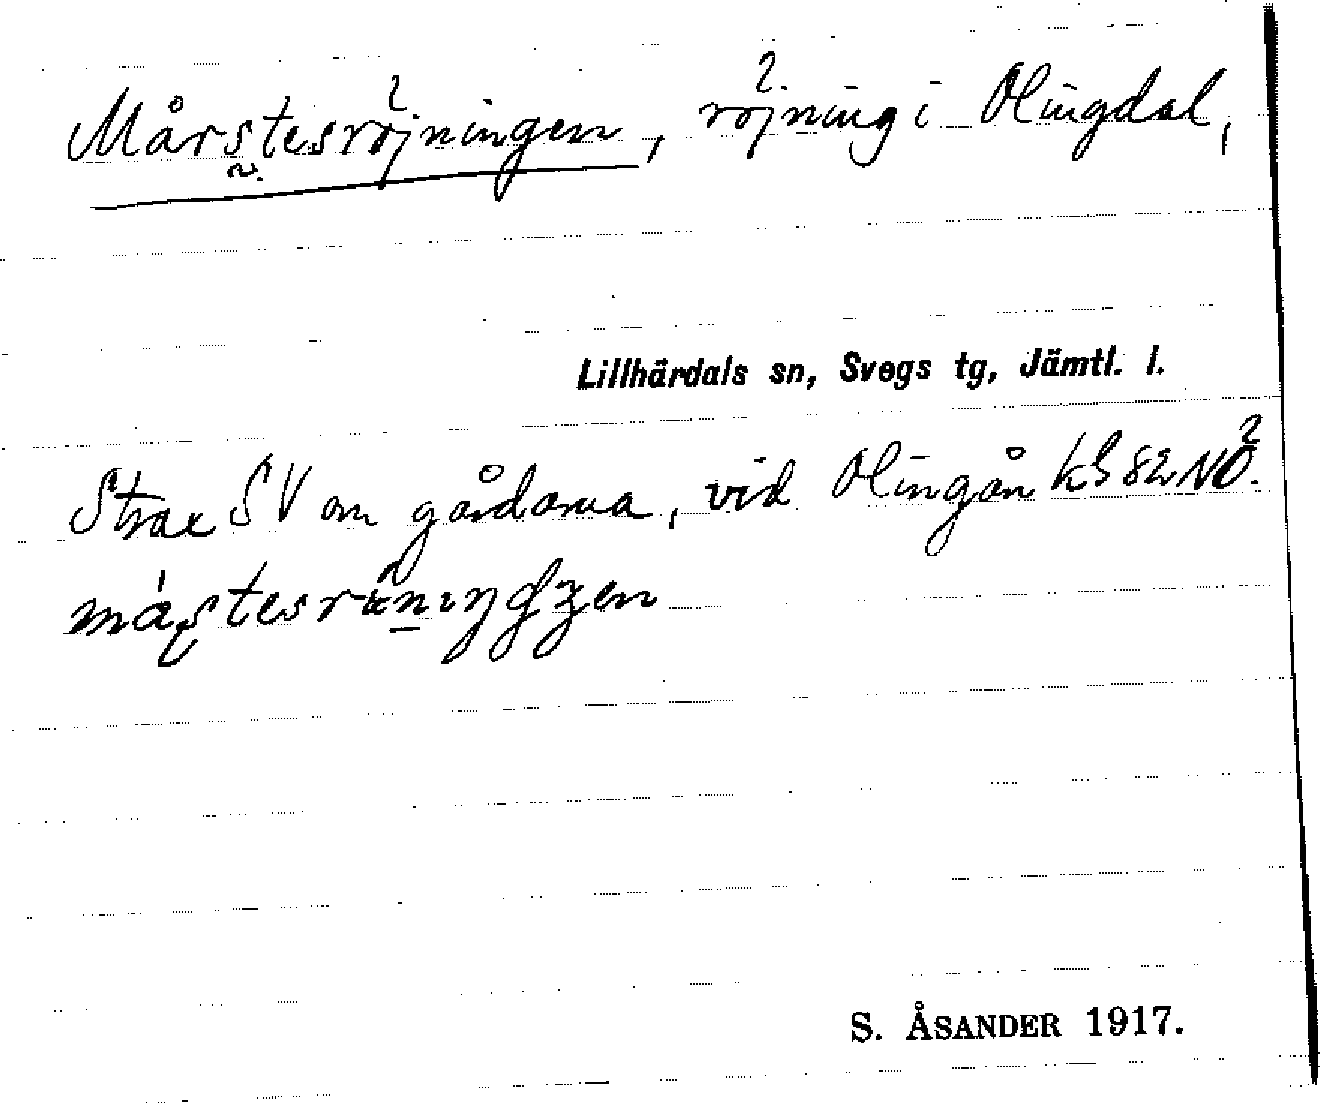 Mårstesröjningen, röjning i Olingdal,
Lillhärdals sn, Svegs tg, Jämtl. l.
Strax SV om gårdarna, vid Olingån kS 82 NO.
S. ÅSANDER 1917.